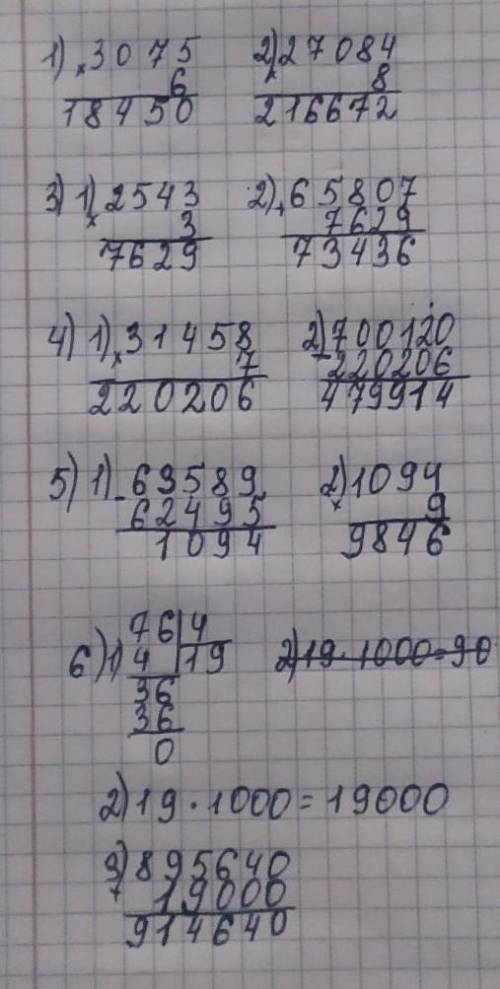 1) × 3075 2) × 27084
6 8
18450 216672
3) 1) × 2543 2) + 65807
3 7629
7629 73436
4) 1) × 31458 2) - 700120
7 220206
220206 479914
5) 1) - 63589 2) × 1094
62495 9
1094 9846
6) 1) 76 | 4 2) 19 · 1000 = 90
4 19
36
36
0
2) 19 · 1000 = 19000
3) + 895640
19000
914640